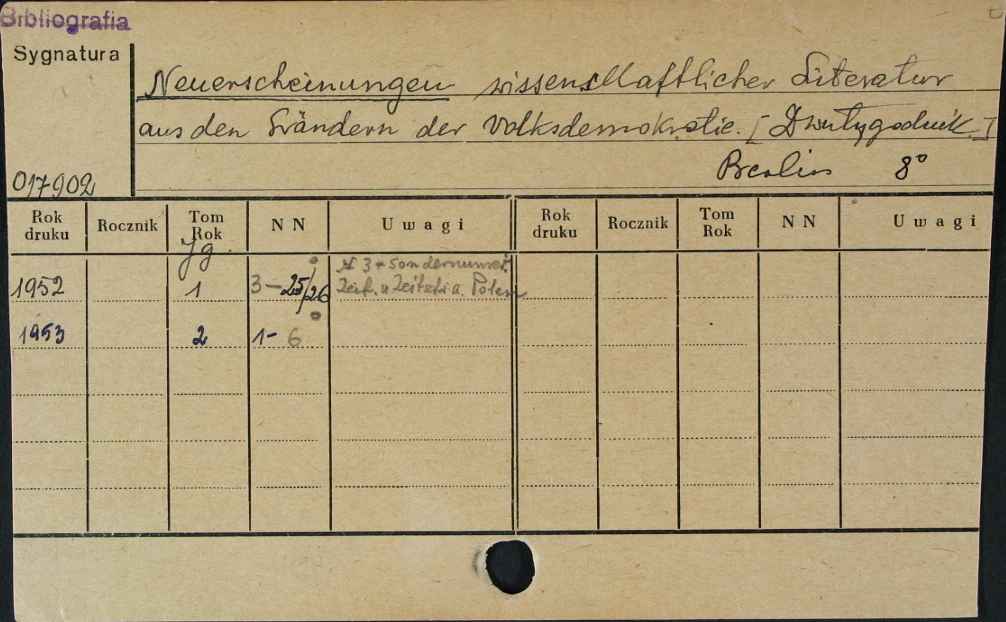 Bibliografia
Sygnatura
Neuerscheinungen wissenschaftlicher Literatur
aus den Ländern der Volksdemokratie. [Dwutygodnik]
017902 Berlin 8°
Rok druku Rocznik Tom Rok N N Uwagi Rok druku Rocznik Tom Rok N N Uwagi
Jg.
3 = Sondernummer.
1952 1 3-25/26 Zeit. u Zeitschr. a. Polen
1953 2 1-6